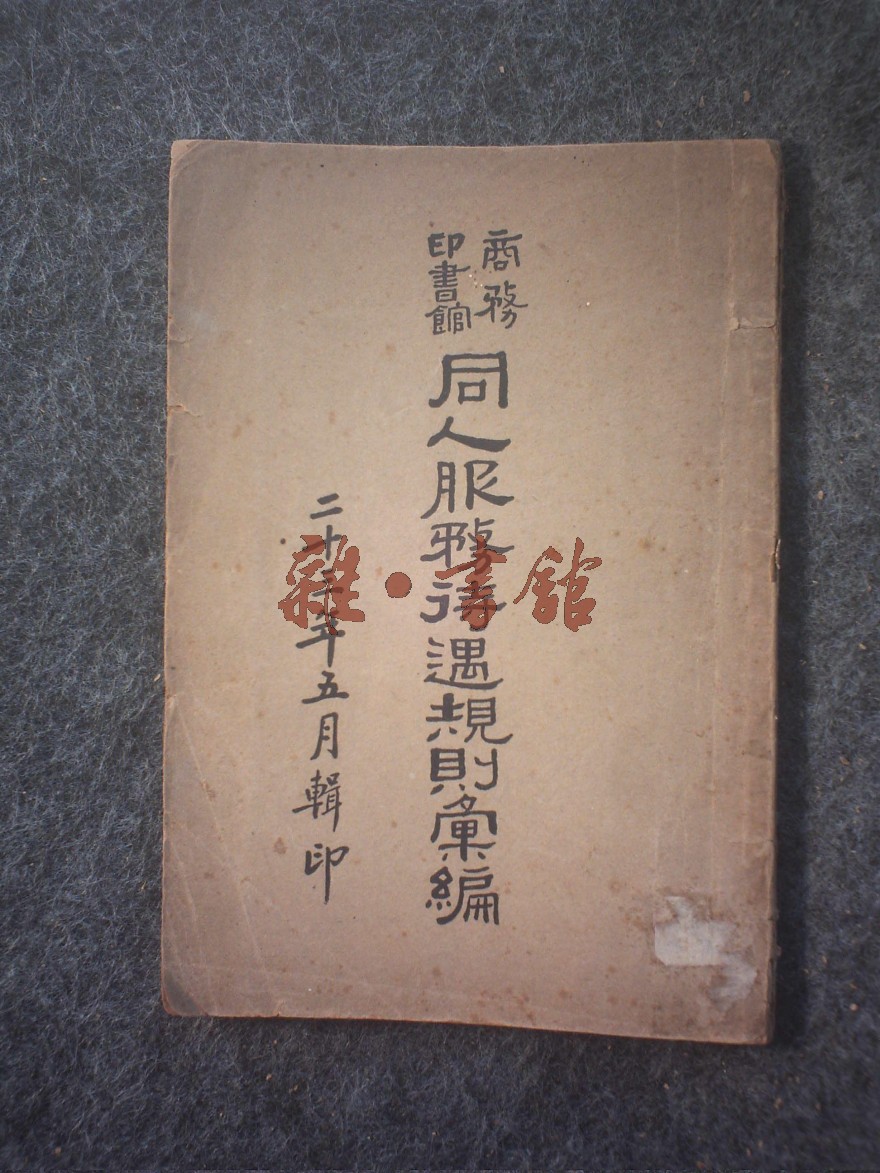 商務
印書館
同人服務待遇規則彙編
二十年五月輯印
雜·書館